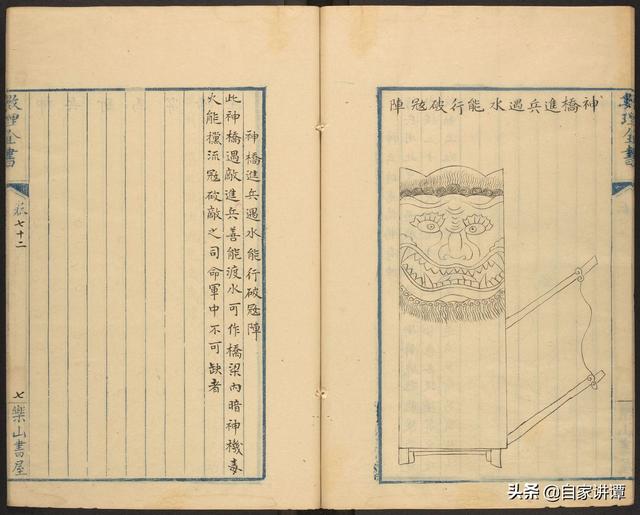 數理全書
神橋進兵遇水能行破寇陣
神橋進兵遇水能行破寇陣
此神橋遇敵進兵善能渡水可作橋梁內暗神機毒
火能攩流寇破敵之司命軍中不可缺者
數理全書
七十二
七
樂山書屋
头条 @自家讲谭